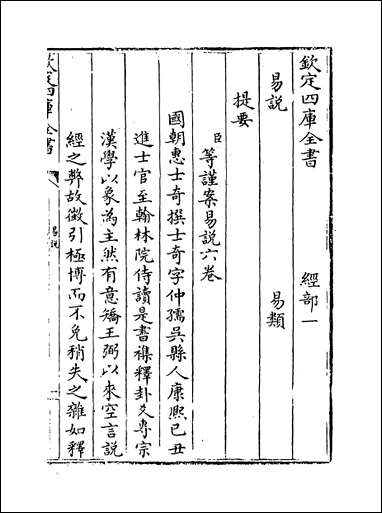 欽定四庫全書　　　經部一
易説　　　　　　　易類
提要
臣等謹案易説六卷
國朝惠士奇撰士奇字仲孺吳縣人康熙己丑
進士官至翰林院侍讀是書雜釋卦爻專宗
漢學以象為主然有意矯王弼以來空言說
經之弊故徵引極博而不免稍失之雜如釋
欽定四庫全書
易説
一